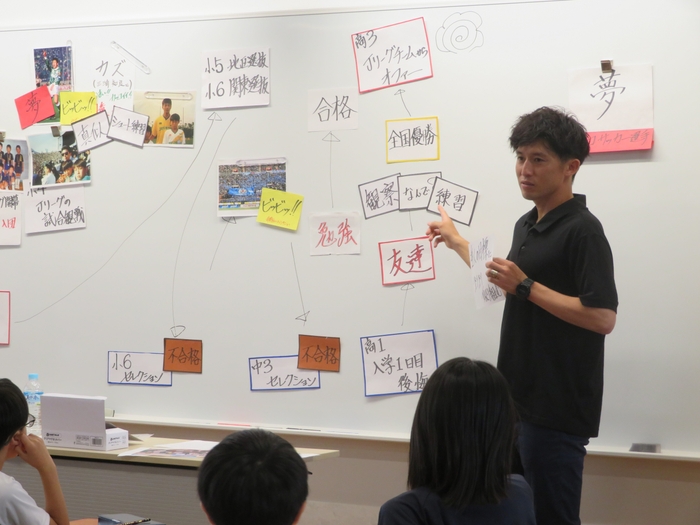 夢
カズ
ビビッ!!
真似
シュート練習
Jリーグの
試合観戦
小5 地区選抜
小6 関東選抜
合格
勉強
ビビッ!!
高3
Jリーグチームから
オファー
全国優勝
観察
なんで
練習
友達
高1
入学1日目
後悔
小6
セレクション
不合格
中3
セレクション
不合格
夢